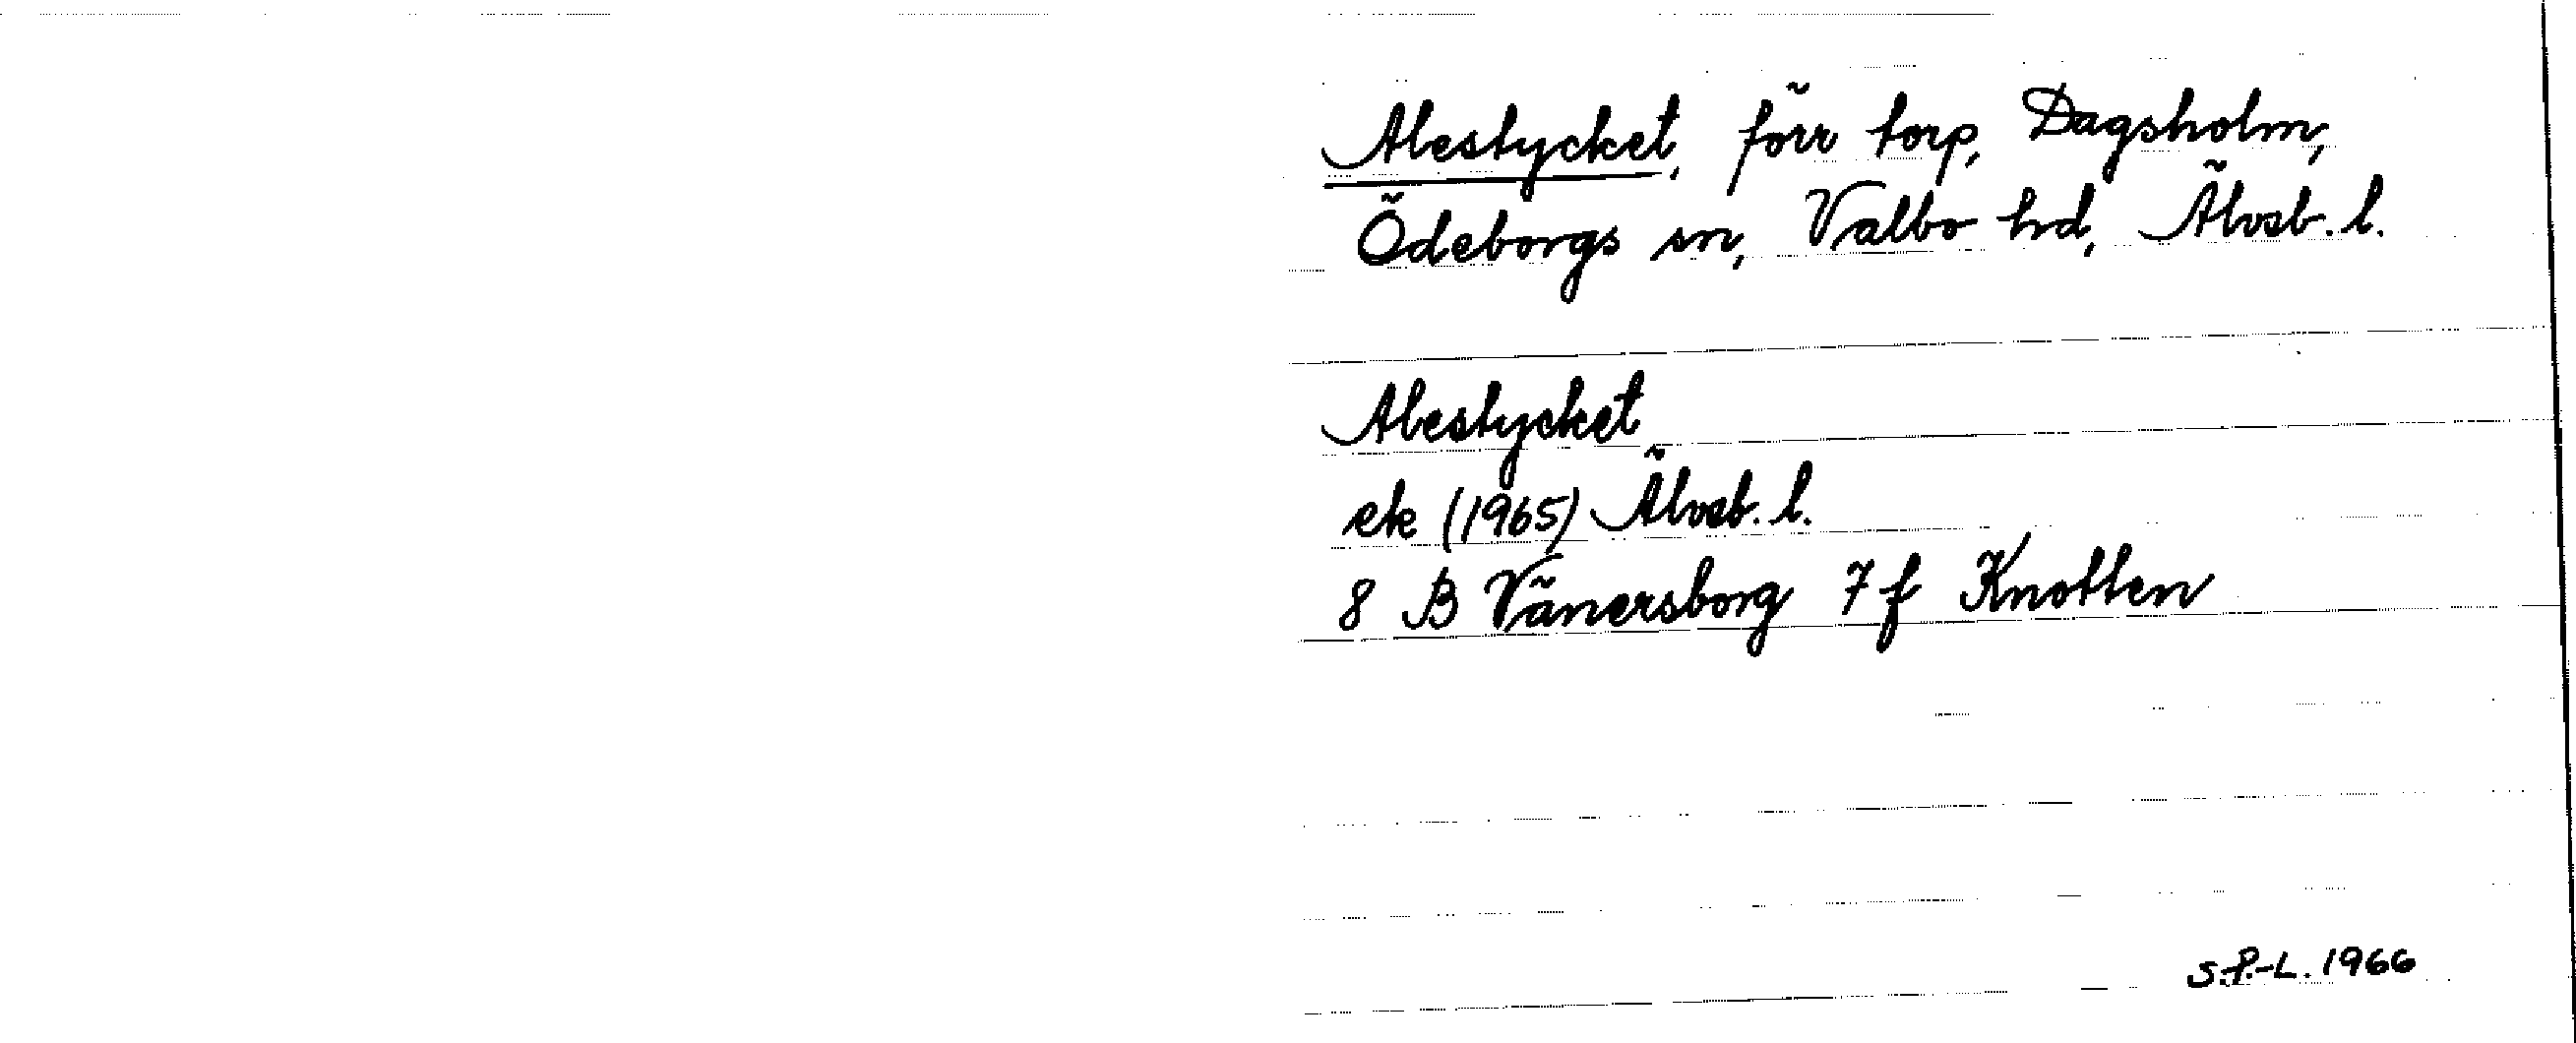 Alestycket, förr torp, Dagsholm,
Ödeborgs sn, Valbo hd, Älvsb. l.
Alestycket
ek (1965) Älvsb. l.
8 B Vänersborg 7 f Knotten
S.P.-L. 1966